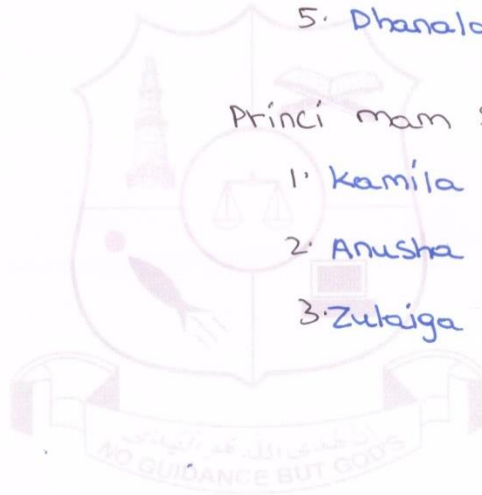 5. Dhanala
Princi mam :
1. Kamila
2. Anusha
3. Zulaiga
NO GUIDANCE BUT GOD'S